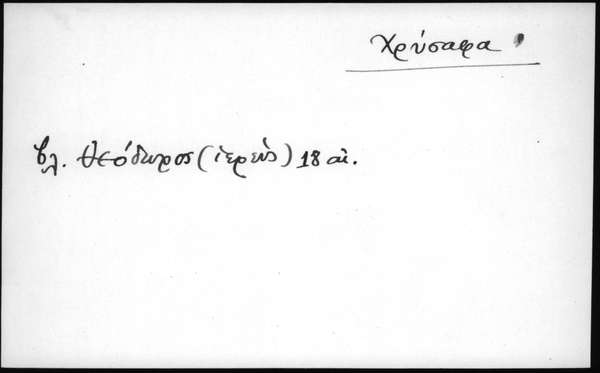 Χρύσαφα
βλ. Θεόδωρος (ἱερεὺς) 18 αἰ.